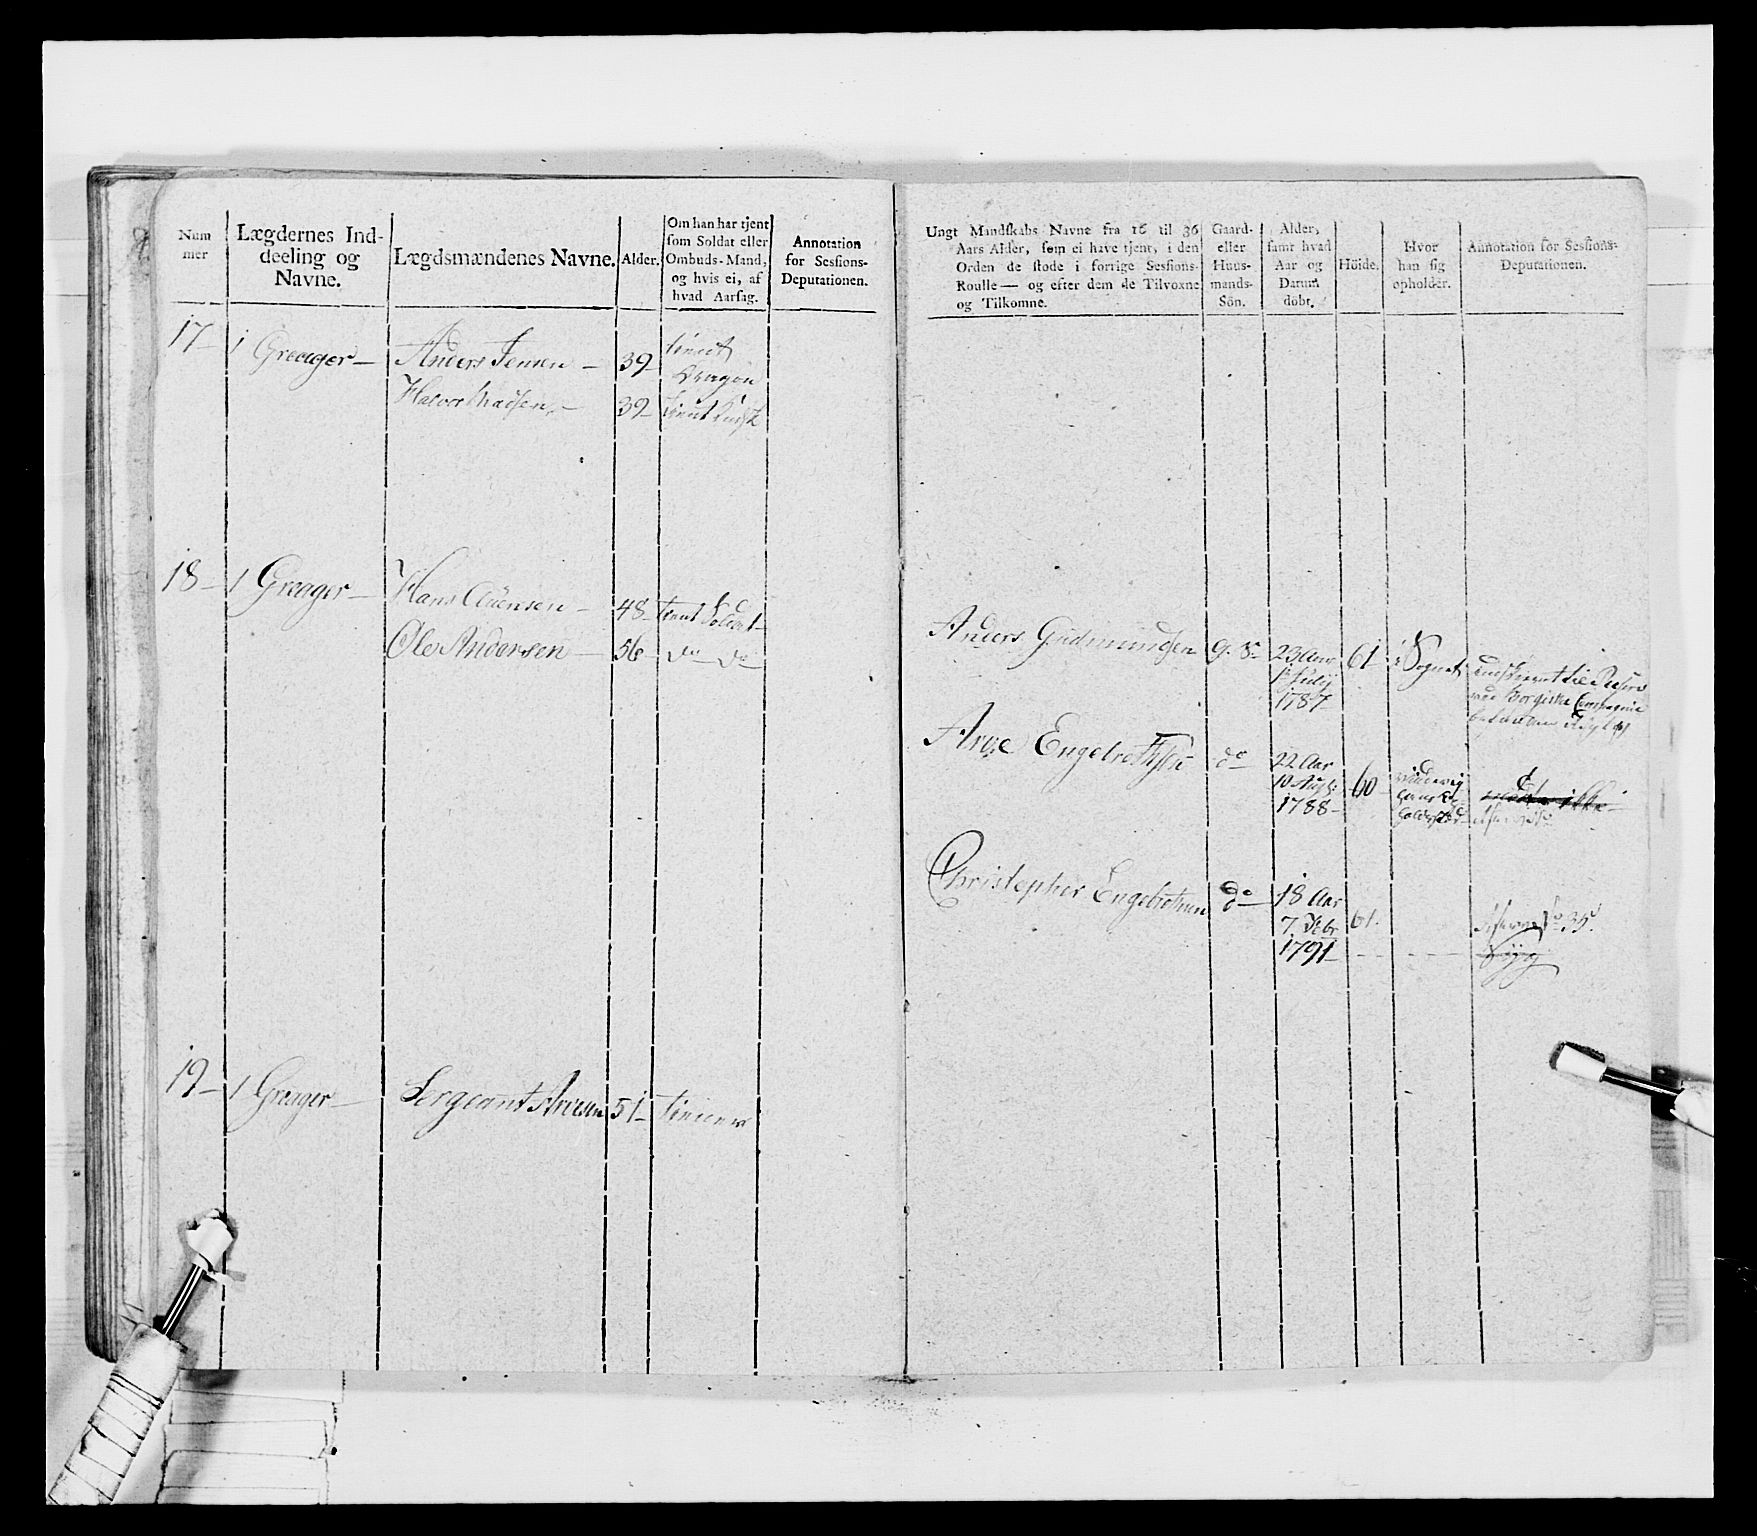 Num
mer
Lægdernes Ind-
deeling og
Navne.
Lægdsmændenes Navne.
Alder.
Om han har tjent
som Soldat eller
Ombuds-Mand,
og hvis ei, af
hvad Aarsag.
Annotation
for Sessions-
Deputationen.
17 1 Greager Anders Jensen 39 tient
Dragon
Halvor Madsen 39 tient
18 1 Greager Hans Clausen 48 tient Soldat
Ole Andersen 56 do do
19 1 Greager Sergeant 51
Ungt Mandskabs Navne fra 16 til 36
Aars Alder, som ei have tjent, i den
Orden de stode i forrige Sessions-
Roulle — og efter dem de Tilvoxne
og Tilkomne.
Gaard-
eller
Huus-
mands-
Sön.
Alder,
samt hvad
Aar og
Datum
döbt.
Höide.
Hvor
han sig
opholder.
Annotation for Sessions-
Deputationen.
Anders Gudmundsen G. S. 23 Aar 61 i Sognet
July
1787
Compagnie
Arne Engebrethsen do 22 Aar 60
10 Aug:
1788
Christopher Engebrethsen do 18 Aar 61
7 Febr
1791